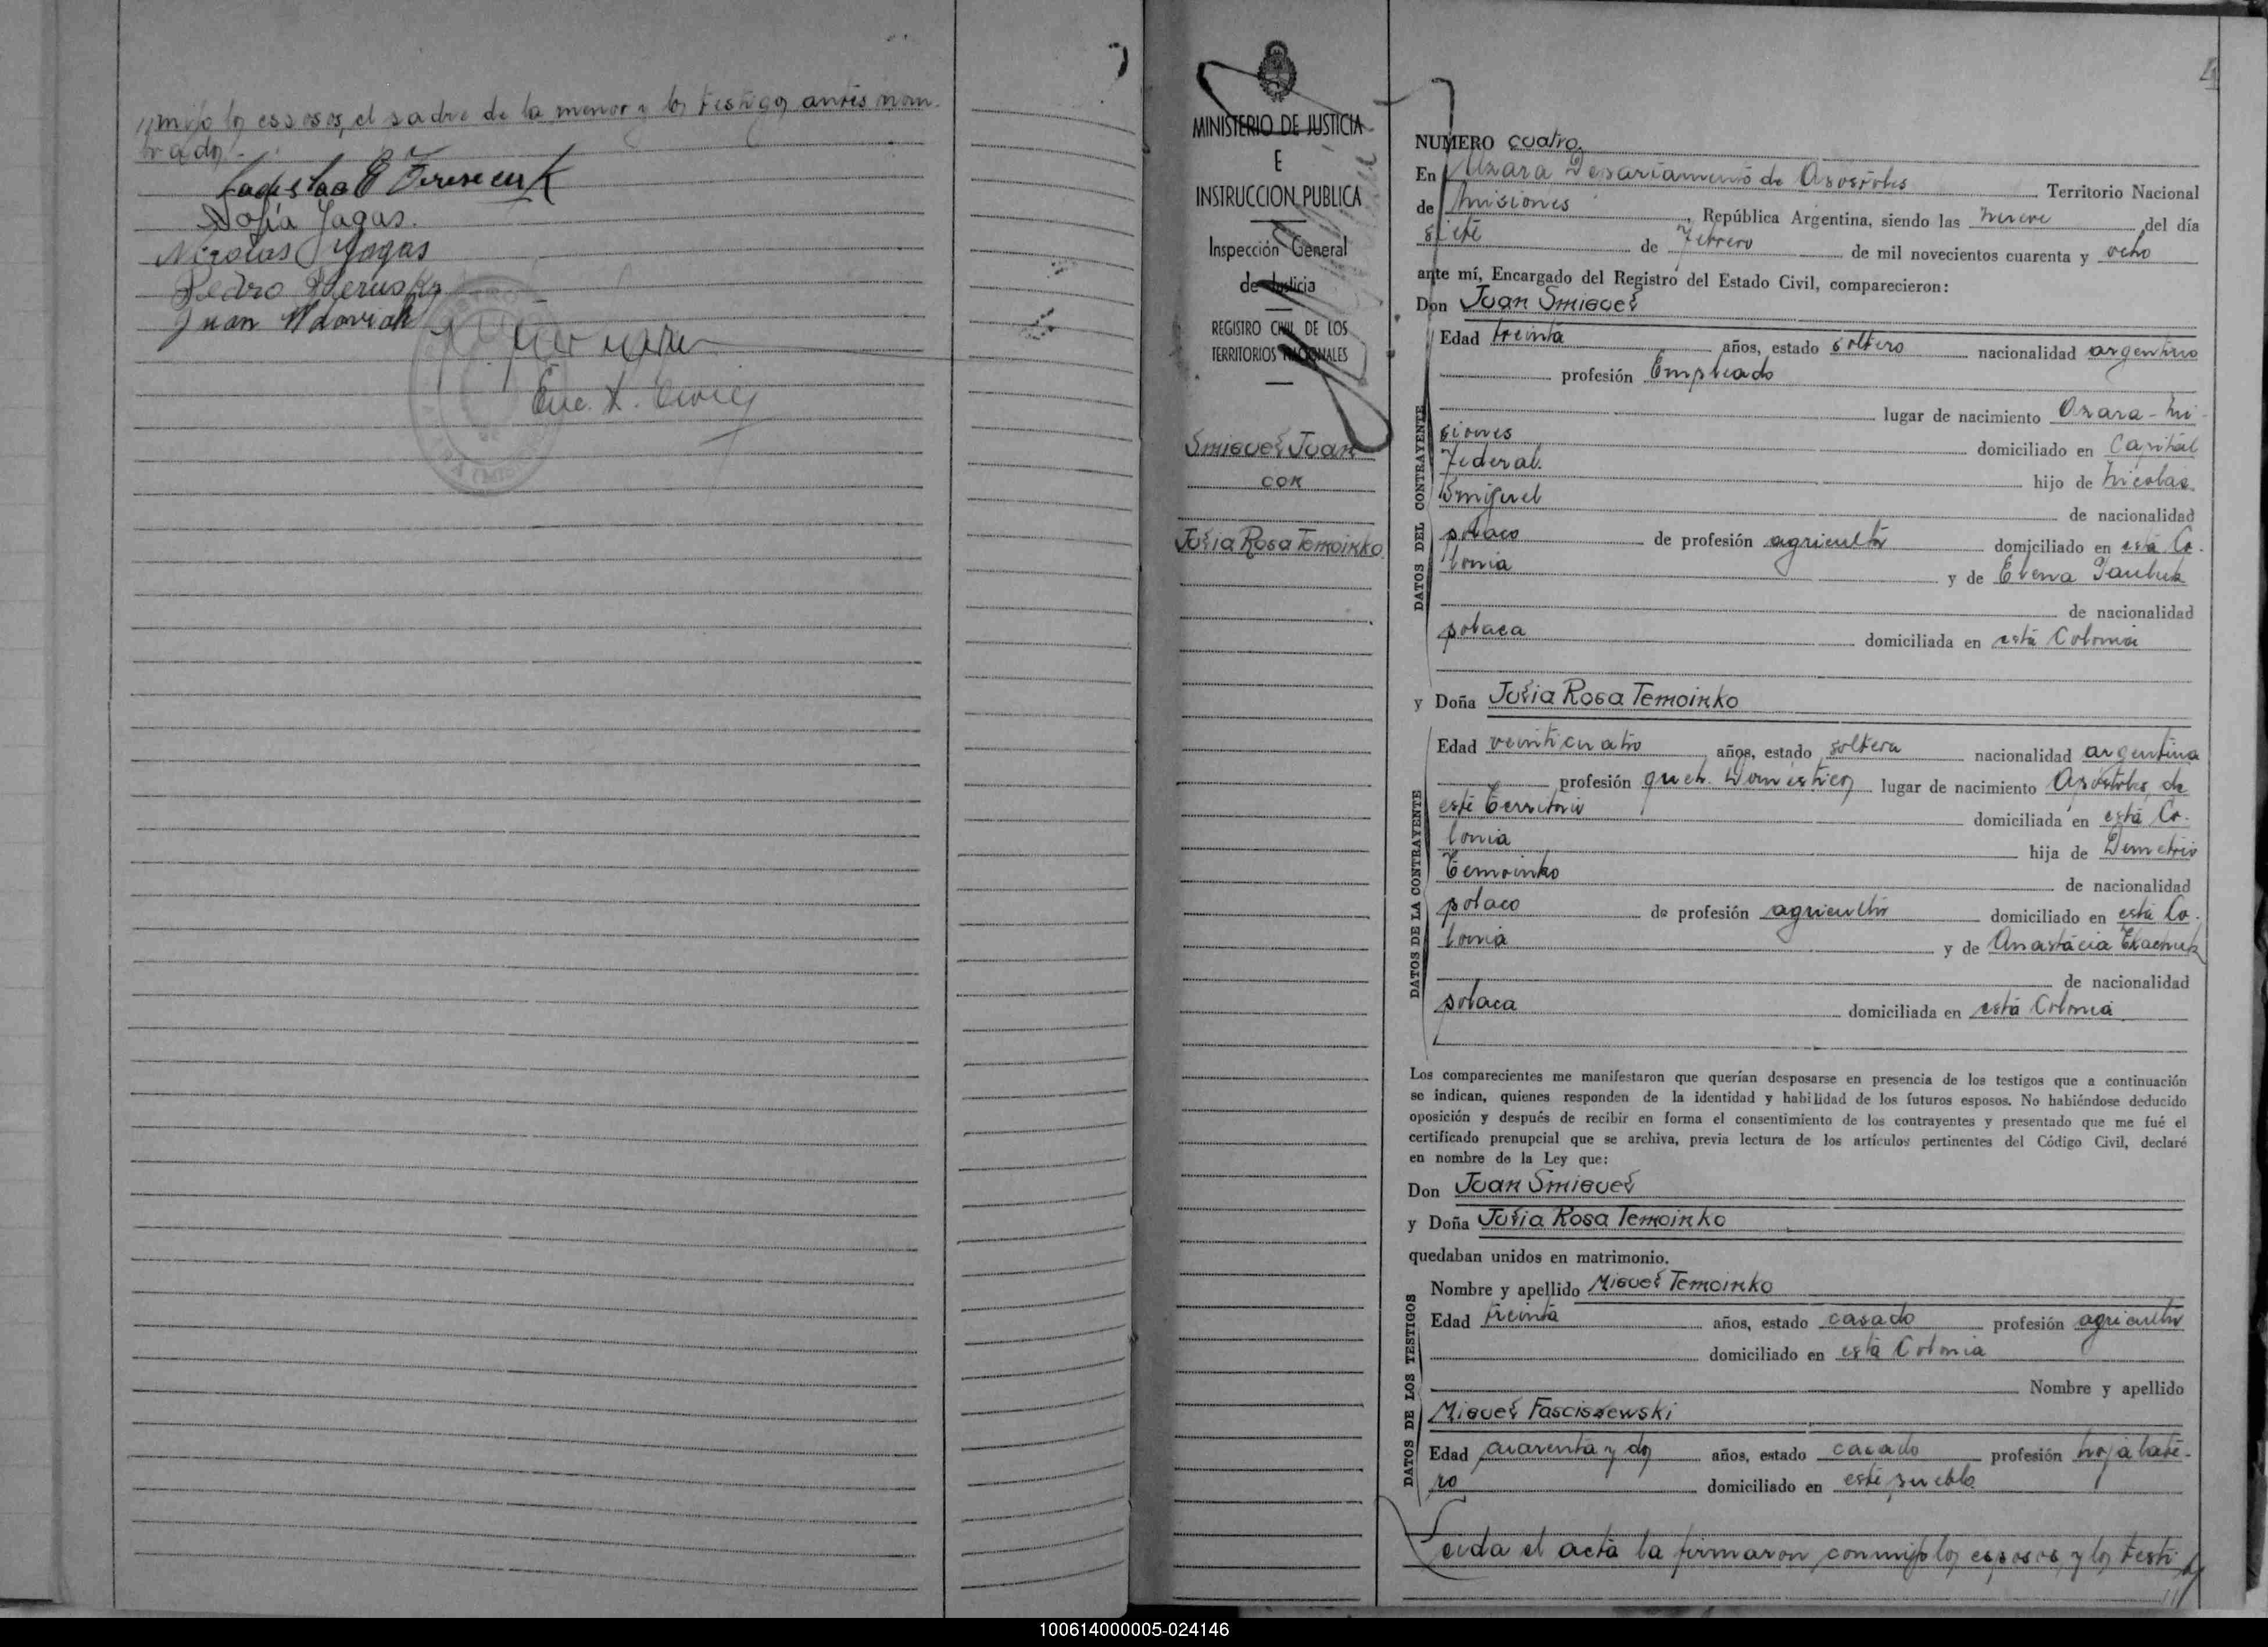 //migo los esposos, el padre de la menor y los testigos antes nom-
brados.-
Sofía Jagas.
Nicolas Jagas
Pedro
Juan
Enc. R. Civil
MINISTERIO DE JUSTICIA
E
INSTRUCCION PUBLICA
Inspección General
de Justicia
REGISTRO CIVIL DE LOS
TERRITORIOS NACIONALES
Smiguel Juan
con
Julia Rosa Temoinko
4
NUMERO cuatro.
En Azara Departamento de Apóstoles Territorio Nacional
de Misiones, República Argentina, siendo las nueve del día
siete de Febrero de mil novecientos cuarenta y ocho
ante mí, Encargado del Registro del Estado Civil, comparecieron:
Don Juan Smiguel
DATOS DEL CONTRAYENTE
Edad treinta años, estado soltero nacionalidad argentino
profesión Empleado
lugar de nacimiento Azara - Mi-
siones domiciliado en Capital
Federal. hijo de Nicolás
Smiguel de nacionalidad
polaco de profesión agricultor domiciliado en esta Co-
lonia y de Elena
de nacionalidad
polaca domiciliada en esta Colonia
y Doña Julia Rosa Temoinko
DATOS DE LA CONTRAYENTE
Edad veinticuatro años, estado soltera nacionalidad argentina
profesión queh. domésticos lugar de nacimiento Apóstoles, de
este Territorio domiciliada en esta Co-
lonia hija de Demetrio
Temoinko de nacionalidad
polaco de profesión agricultor domiciliado en esta Co-
lonia y de Anastacia Tkachuk
de nacionalidad
polaca domiciliada en esta Colonia
Los comparecientes me manifestaron que querían desposarse en presencia de los testigos que a continuación
se indican, quienes responden de la identidad y habilidad de los futuros esposos. No habiéndose deducido
oposición y después de recibir en forma el consentimiento de los contrayentes y presentado que me fué el
certificado prenupcial que se archiva, previa lectura de los artículos pertinentes del Código Civil, declaré
en nombre de la Ley que:
Don Juan Smiguel
y Doña Julia Rosa Temoinko
quedaban unidos en matrimonio.
DATOS DE LOS TESTIGOS
Nombre y apellido Miguel Temoinko
Edad treinta años, estado casado profesión agricultor
domiciliado en esta Colonia
Nombre y apellido
Miguel Fasciszewski
Edad cuarenta y dos años, estado casado profesión hojalate-
ro domiciliado en este pueblo
Leida el acta la firmaron conmigo los esposos y los testi-
//
100614000005-024146